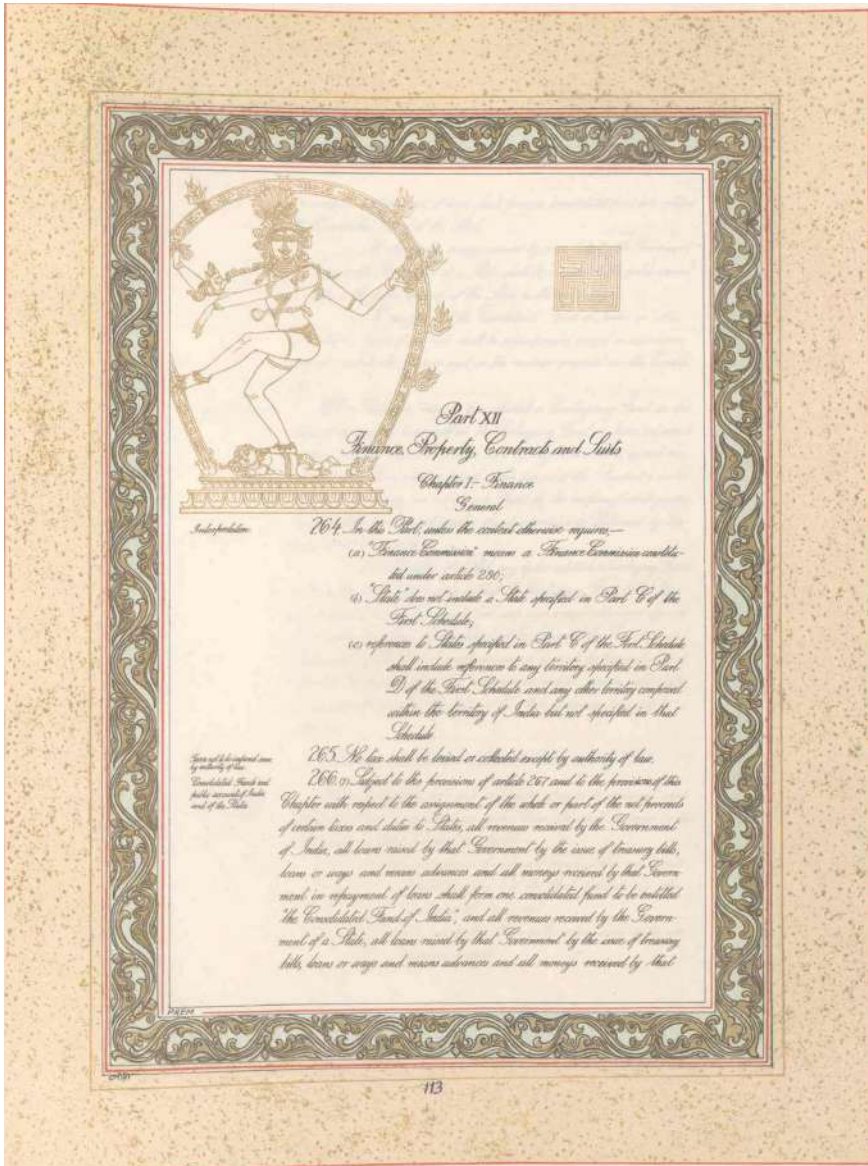 Part XII
Finance, Property, Contracts and Suits
Chapter I.- Finance
General
Interpretation
264. In this Part, unless the context otherwise requires,—
(a) "Finance Commission" means a Finance Commission constitu-
ted under article 280;
(b) "State" does not include a State specified in Part C of the
First Schedule;
(c) references to States specified in Part C of the First Schedule
shall include references to any territory specified in Part
D of the First Schedule and any other territory comprised
within the territory of India but not specified in that
Schedule
Taxes not to be imposed save
by authority of law.
265. No tax shall be levied or collected except by authority of law.
Consolidated Funds and
public accounts of India
and of the States
266. (1) Subject to the provisions of article 267 and to the provisions of this
Chapter with respect to the assignment of the whole or part of the net proceeds
of certain taxes and duties to States, all revenues received by the Government
of India, all loans raised by that Government by the issue of treasury bills,
loans or ways and means advances and all moneys received by that Govern-
ment in repayment of loans shall form one consolidated fund to be entitled
"the Consolidated Fund of India", and all revenues received by the Govern-
ment of a State, all loans raised by that Government by the issue of treasury
bills, loans or ways and means advances and all moneys received by that
PREM
113